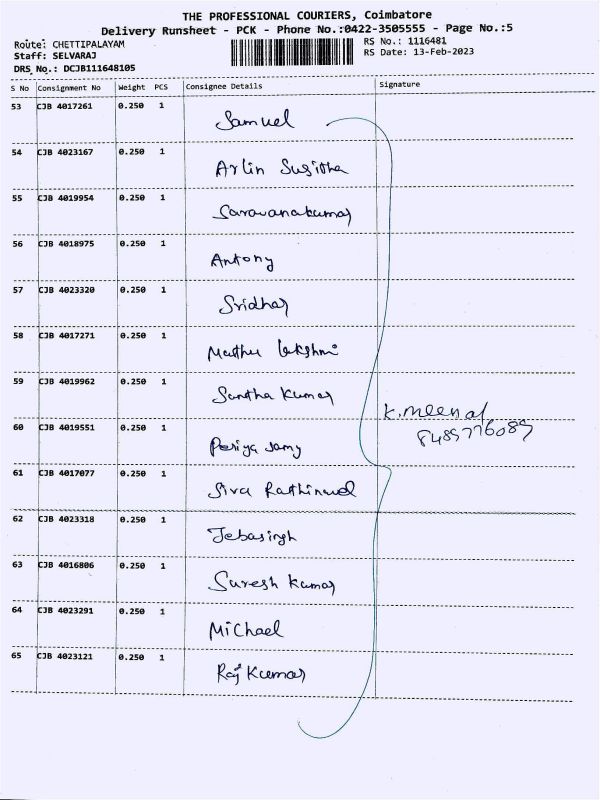 THE PROFESSIONAL COURIERS, Coimbatore
Delivery Runsheet - PCK - Phone No.:0422-3505555 - Page No.:5
Route: CHETTIPALAYAM
RS No.: 1116481
Staff: SELVARAJ
RS Date: 13-Feb-2023
DRS No.: DCJB111648105
S No Consignment No Weight PCS Consignee Details Signature
53 CJB 4017261 0.250 1 Samuel
54 CJB 4023167 0.250 1 Arlin Sugitha
55 CJB 4019954 0.250 1 Saravanakumar
56 CJB 4018975 0.250 1 Antony
57 CJB 4023320 0.250 1 Sridhar
58 CJB 4017271 0.250 1 Muthu lakshmi
59 CJB 4019962 0.250 1 Santha Kumar
K. Meenal
60 CJB 4019551 0.250 1 Periya Samy
61 CJB 4017077 0.250 1 Siva Rathinavel
62 CJB 4023318 0.250 1 Jebasingh
63 CJB 4016806 0.250 1 Suresh Kumar
64 CJB 4023291 0.250 1 Michael
65 CJB 4023121 0.250 1 Raj Kumar